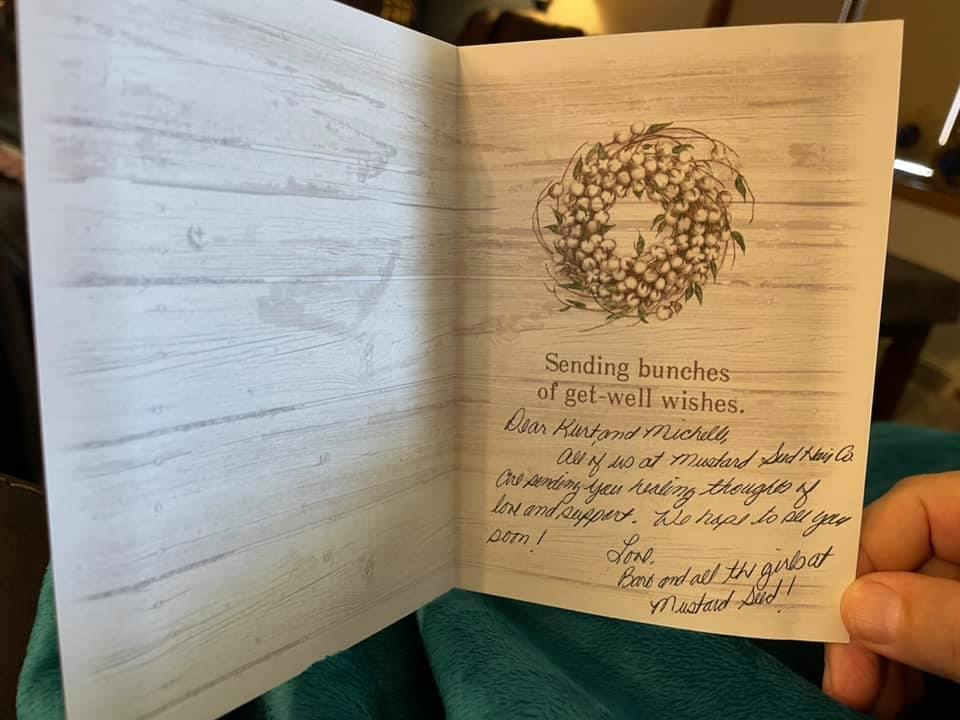 Sending bunches
of get-well wishes.
Dear Kurt and Michelle,
All of us at Mustard Seed Hair Co.
are sending you healing thoughts of
love and support. We hope to see you
soon!
Love,
Barb and all the girls at
Mustard Seed!